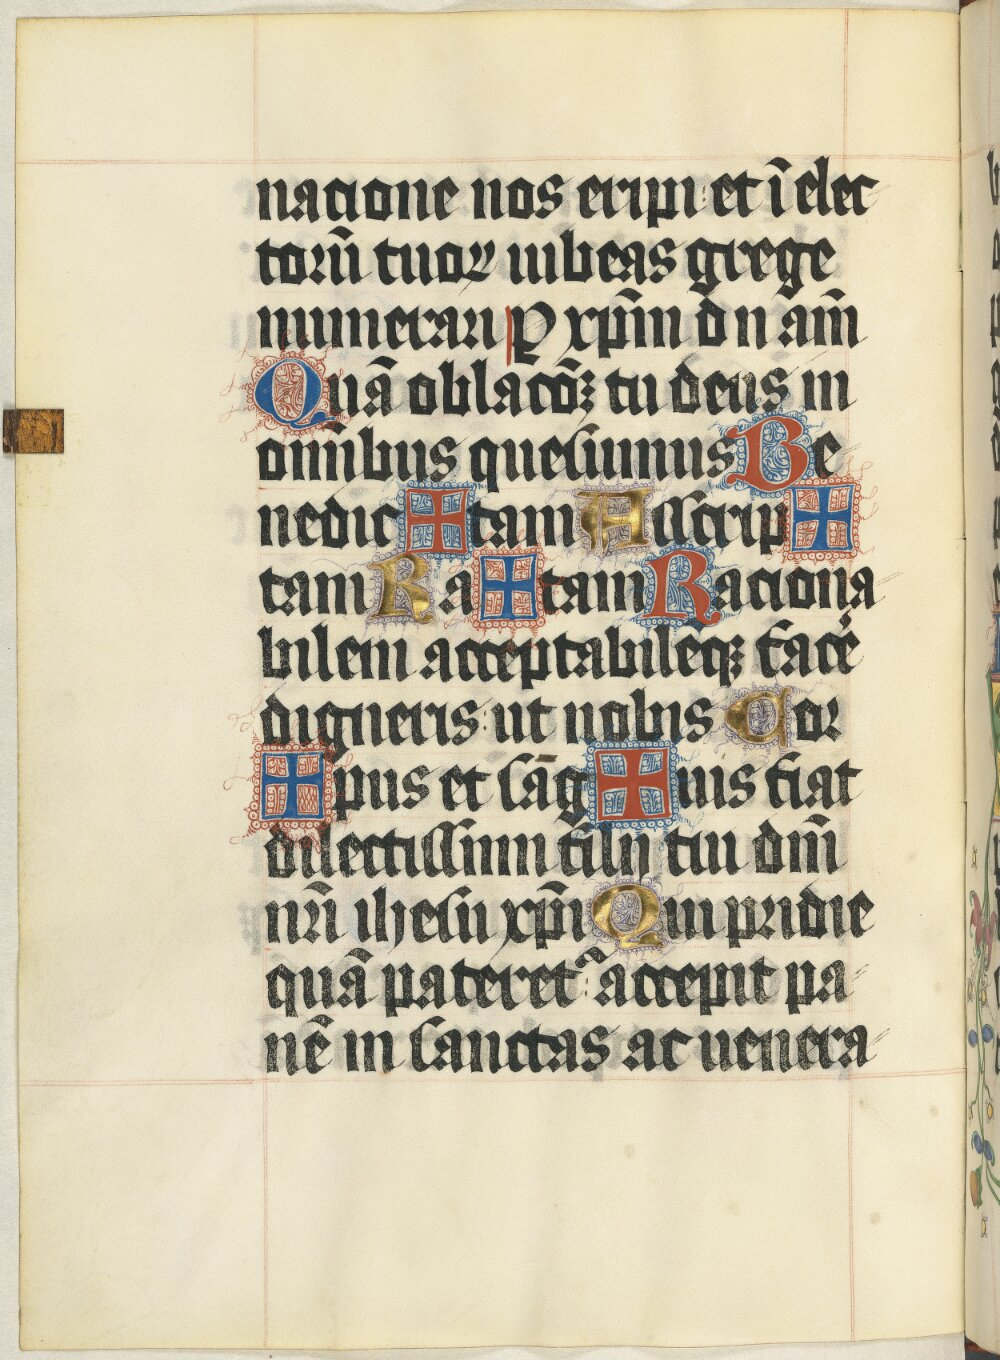 nacione nos eripi: et ī elec
torū tuoꝝ iubeas grege
numerari P xp̄m dn̄ am̄
Quā oblacōꝫ tu deus in
om̄ibus quesumus Be
nedic ✠ tam Asscrip ✠
tam Ra ✠ tam Raciona
bilem acceptabileqꝫ facē
digneris: ut nobis Cor
✠ pus et sāg ✠ uis fiat
dilectissimi filij tui dm̄
nr̄i ihesu xp̄i Qui pridie
quā pateret᷑ : accepit pa
nē in sanctas ac uenera